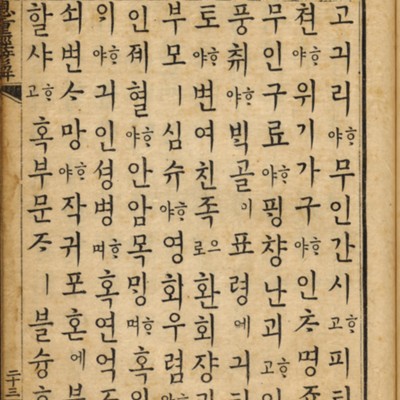 고긔리ᄒᆞ야무인간시ᄒᆞ고피
쳔ᄒᆞ야위기가구ᄒᆞ야인ᄎᆞ명
무인구료ᄒᆞ야핑챵난괴ᄒᆞ고인
풍취ᄒᆞ야ᄇᆡᆨ골이표령에긔
토ᄒᆞ야변여친족으로환회쟝긔
부모ㅣ심슈ᄒᆞ야영화우렴
인졔혈ᄒᆞ야안암목ᄆᆡᆼᄒᆞ며혹
의ᄒᆞ야긔인셩병ᄒᆞ며혹연억
쇠변ᄉᆞ망ᄒᆞ야작귀포혼에부
할샤ᄒᆞ고혹부문ᄌᆞㅣ블슝
恩重經諺解
二十三